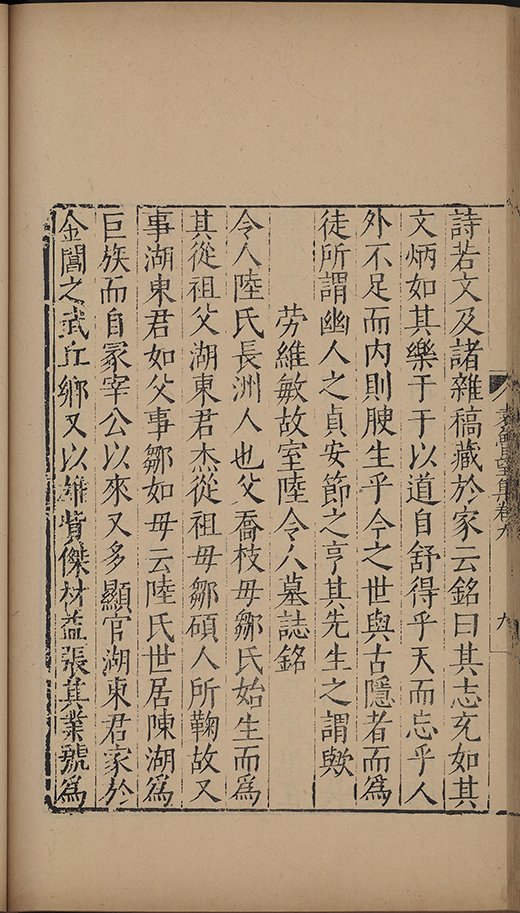 詩若文及諸雜稿藏於家云銘曰其志充如其
文炳如其樂于于以道自舒得乎天而忘乎人
外不足而内則腴生乎今之世與古隱者而爲
徒所謂幽人之貞安節之亨其先生之謂歟
勞維敏故室陸令人墓誌銘
令人陸氏長洲人也父喬枝毋鄒氏始生而爲
其從祖父湖東君杰從祖毋鄒碩人所鞠故又
事湖東君如父事鄒如毋云陸氏世居陳湖爲
巨族而自冢宰公以來又多顯官湖東君家於
金閶之武丘鄉又以雄貲傑材益張其業號爲